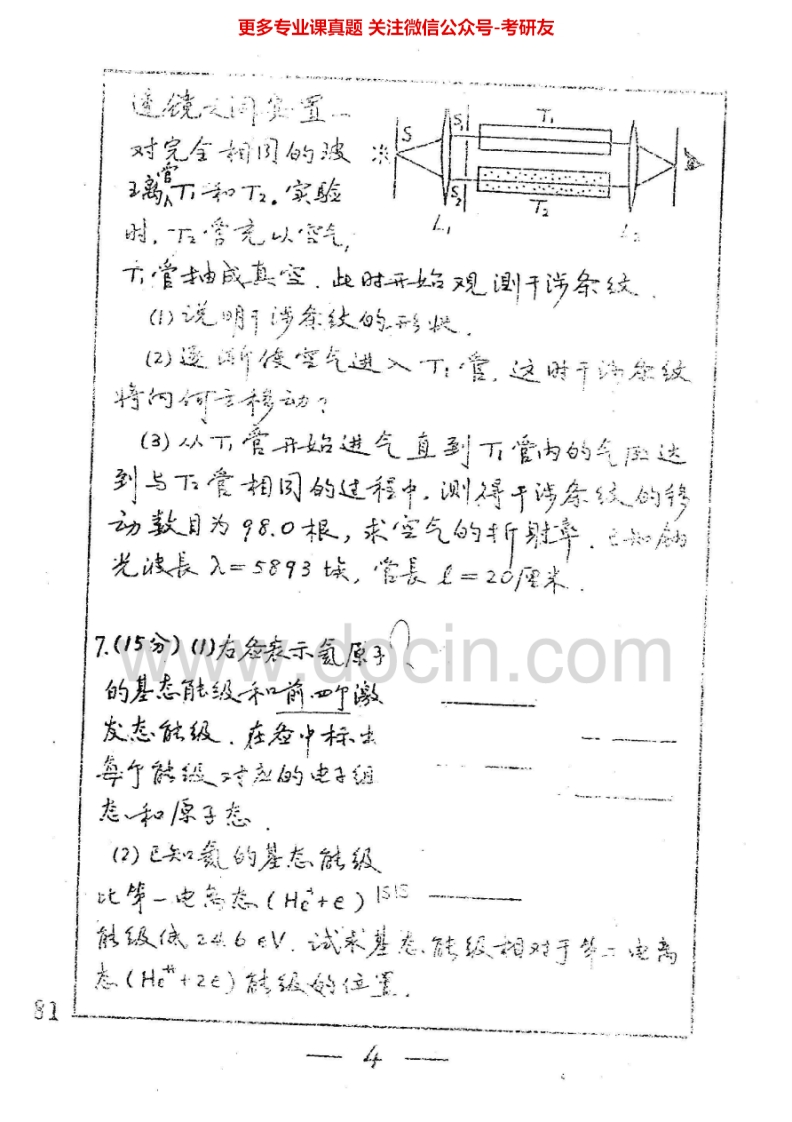 更多专业课真题 关注微信公众号-考研友
透镜之间安置一
对完全相同的玻
璃管T₁和T₂。实验
时，T₂管充以空气，
T₁管抽成真空．此时开始观测干涉条纹．
S S₁ T₁
S₂ T₂
L₁ L₂
(1) 说明干涉条纹的形状．
(2) 逐渐使空气进入T₁管，这时干涉条纹
将向何方移动？
(3) 从T₁管开始进气直到T₁管内的气压达
到与T₂管相同的过程中，测得干涉条纹的移
动数目为98.0根，求空气的折射率．已知钠
光波長 λ=5893埃，管長 l=20厘米．
www.docin.com
7.(15分) (1)右图表示氦原子
的基态能级和前四个激
发态能级．在图中标出
每个能级对应的电子组
态和原子态．
(2) 已知氦的基态能级
比第一电离态(He⁺+e) 1S1S
能级低24.6 eV．试求基态能级相对于第二电离
态(He⁺⁺+2e)能级的位置．
81
— 4 —